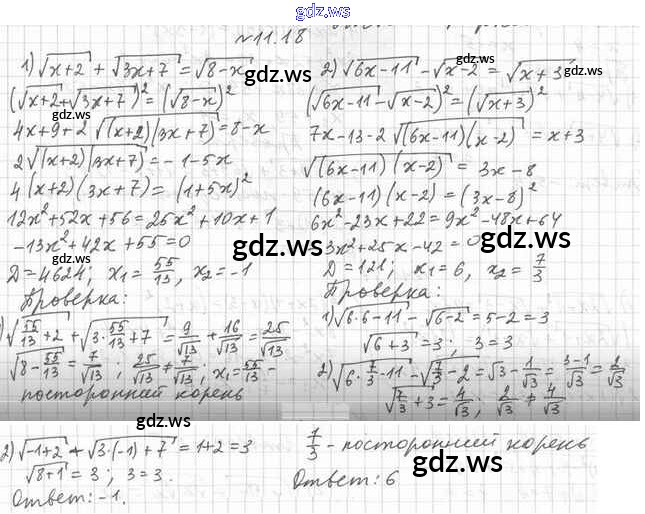 gdz.ws
№11.18
1) √(x+2) + √(3x+7) = √(8-x)
gdz.ws
(√(x+2) + √(3x+7))² = (√(8-x))²
4x+9+2√((x+2)(3x+7)) = 8-x
2√((x+2)(3x+7)) = -1-5x
4(x+2)(3x+7) = (1+5x)²
12x²+52x+56 = 25x²+10x+1
-13x²+42x+55=0
gdz.ws
D=4624; x₁= 55/13, x₂=-1
Проверка:
1) √(55/13+2) + √(3·55/13+7) = 9/√13 + 16/√13 = 25/√13
√(8-55/13) = 7/√13; 25/√13 ≠ 7/√13; x₁=55/13 -
посторонний корень
gdz.ws
2) √(-1+2) + √(3·(-1)+7) = 1+2=3
√(8+1) = 3; 3=3.
Ответ: -1.
2) √(6x-11) - √(x-2) = √(x+3)
gdz.ws
gdz.ws
(√(6x-11) - √(x-2))² = (√(x+3))²
7x-13-2√((6x-11)(x-2)) = x+3
√((6x-11)(x-2)) = 3x-8
(6x-11)(x-2) = (3x-8)²
6x²-23x+22=9x²-48x+64
3x²+25x-42=0
gdz.ws
D=121; x₁=6, x₂= 7/3
Проверка:
1) √(6·6-11) - √(6-2) = 5-2=3
√(6+3) = 3; 3=3
2) √(6·7/3-11) - √(7/3-2) = √3 - 1/√3 = (3-1)/√3 = 2/√3
√(7/3+3) = 4/√3; 2/√3 ≠ 4/√3
7/3 - посторонний корень
gdz.ws
Ответ: 6